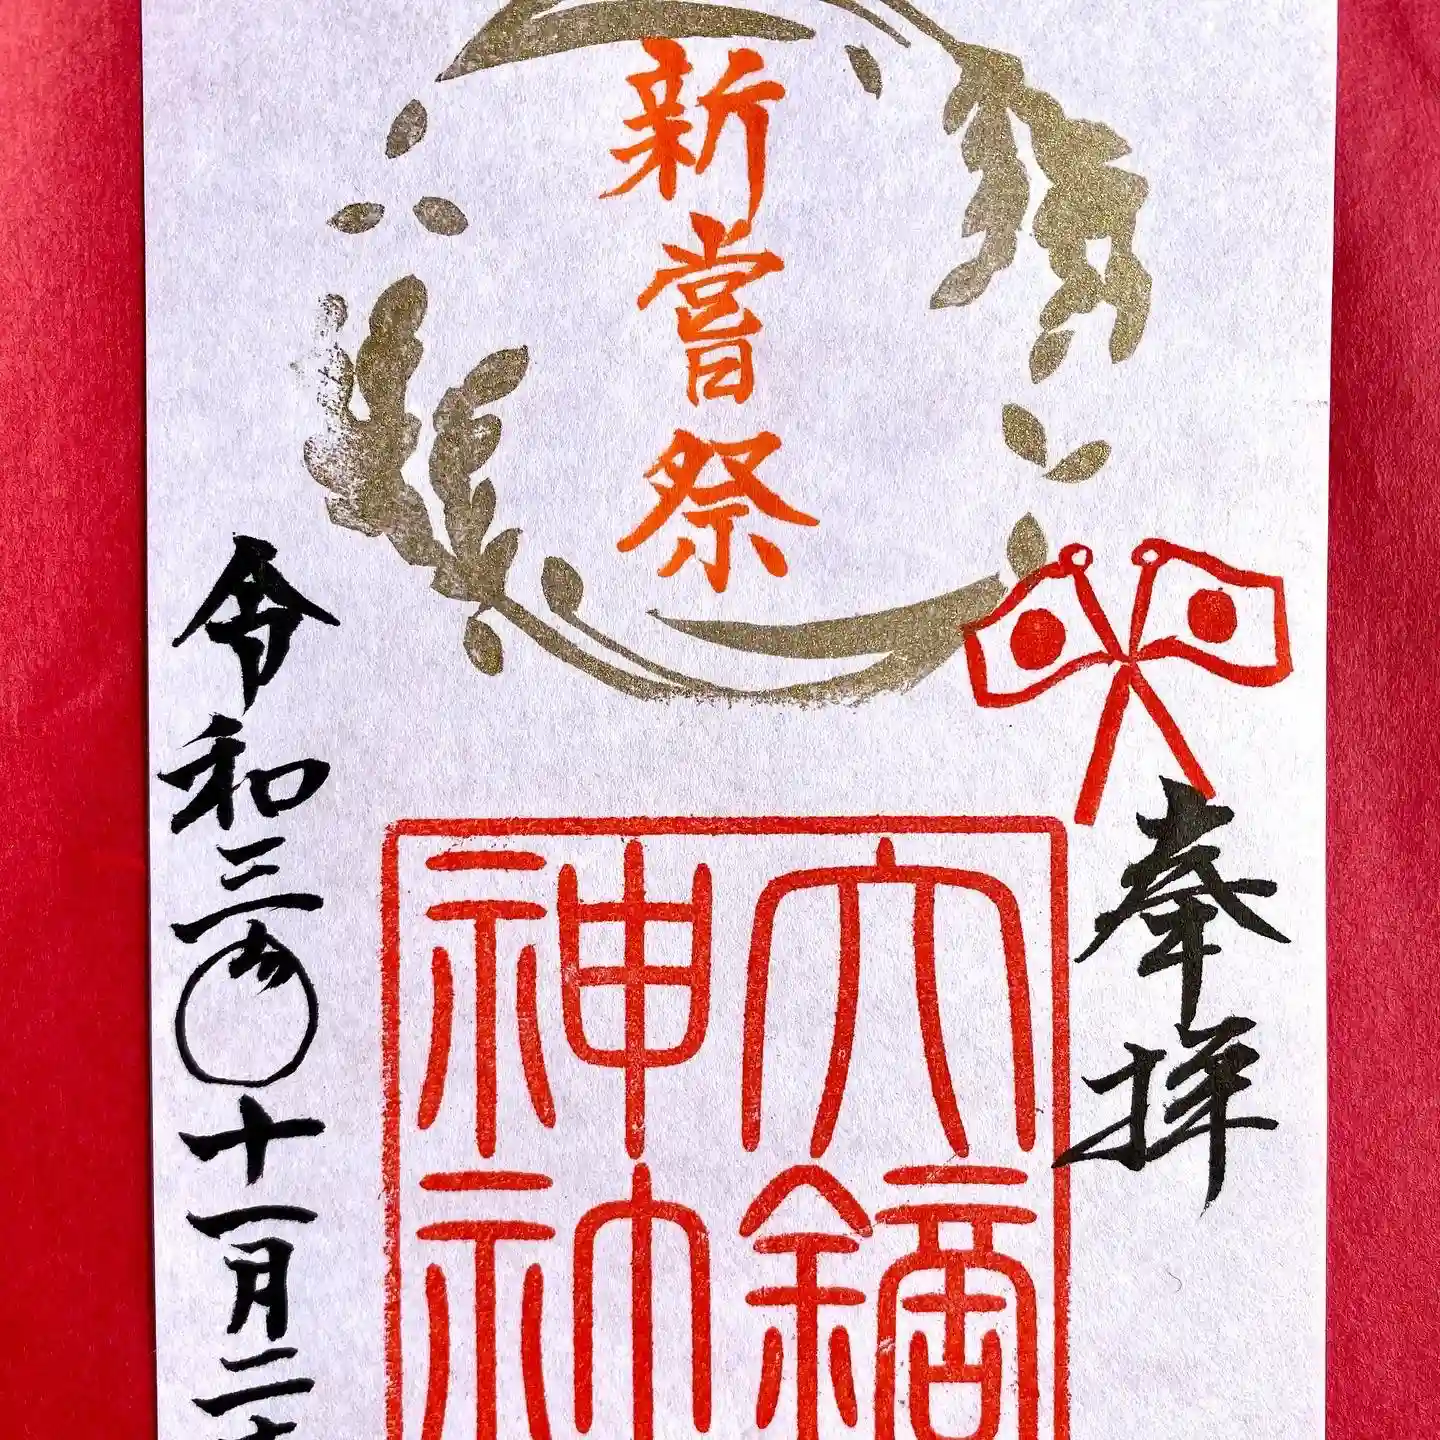 奉拝
新嘗祭
大鏑
神社
令和三年十一月二